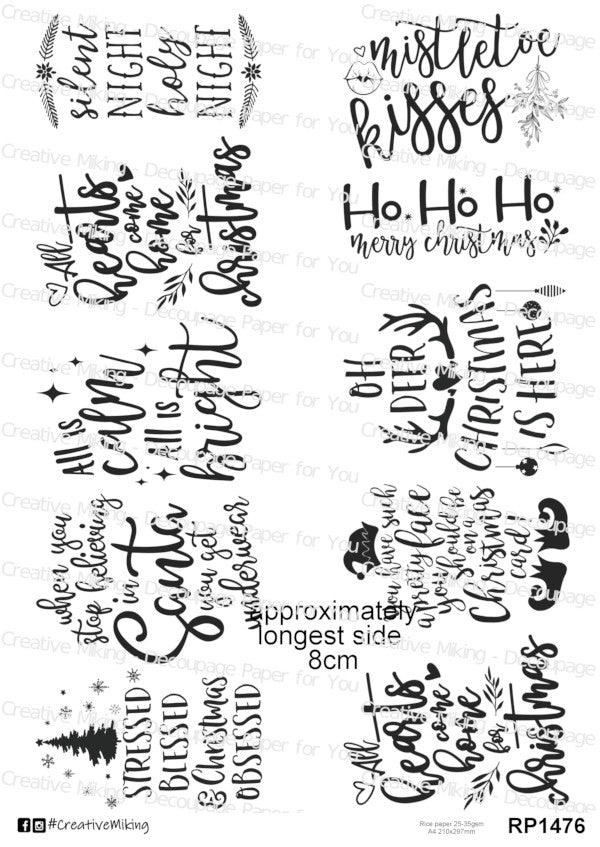 silent
NIGHT
holy
NIGHT
mistletoe
kisses
All
hearts
come
home
for
christmas
Ho Ho Ho
merry christmas
All is
calm
All is
bright
OH
DEER
CHRISTMAS
IS HERE
when you
stop believing
in
Santa
you get
underwear
you have such
a pretty face
you should be
on a
Christmas
card
approximately
longest side
8cm
STRESSED
BLESSED
& Christmas
OBSESSED
All
hearts
come
home
for
christmas
Creative Miking - Decoupage Paper for You
#CreativeMiking
Rice paper 25-35gsm
A4 210x297mm
RP1476